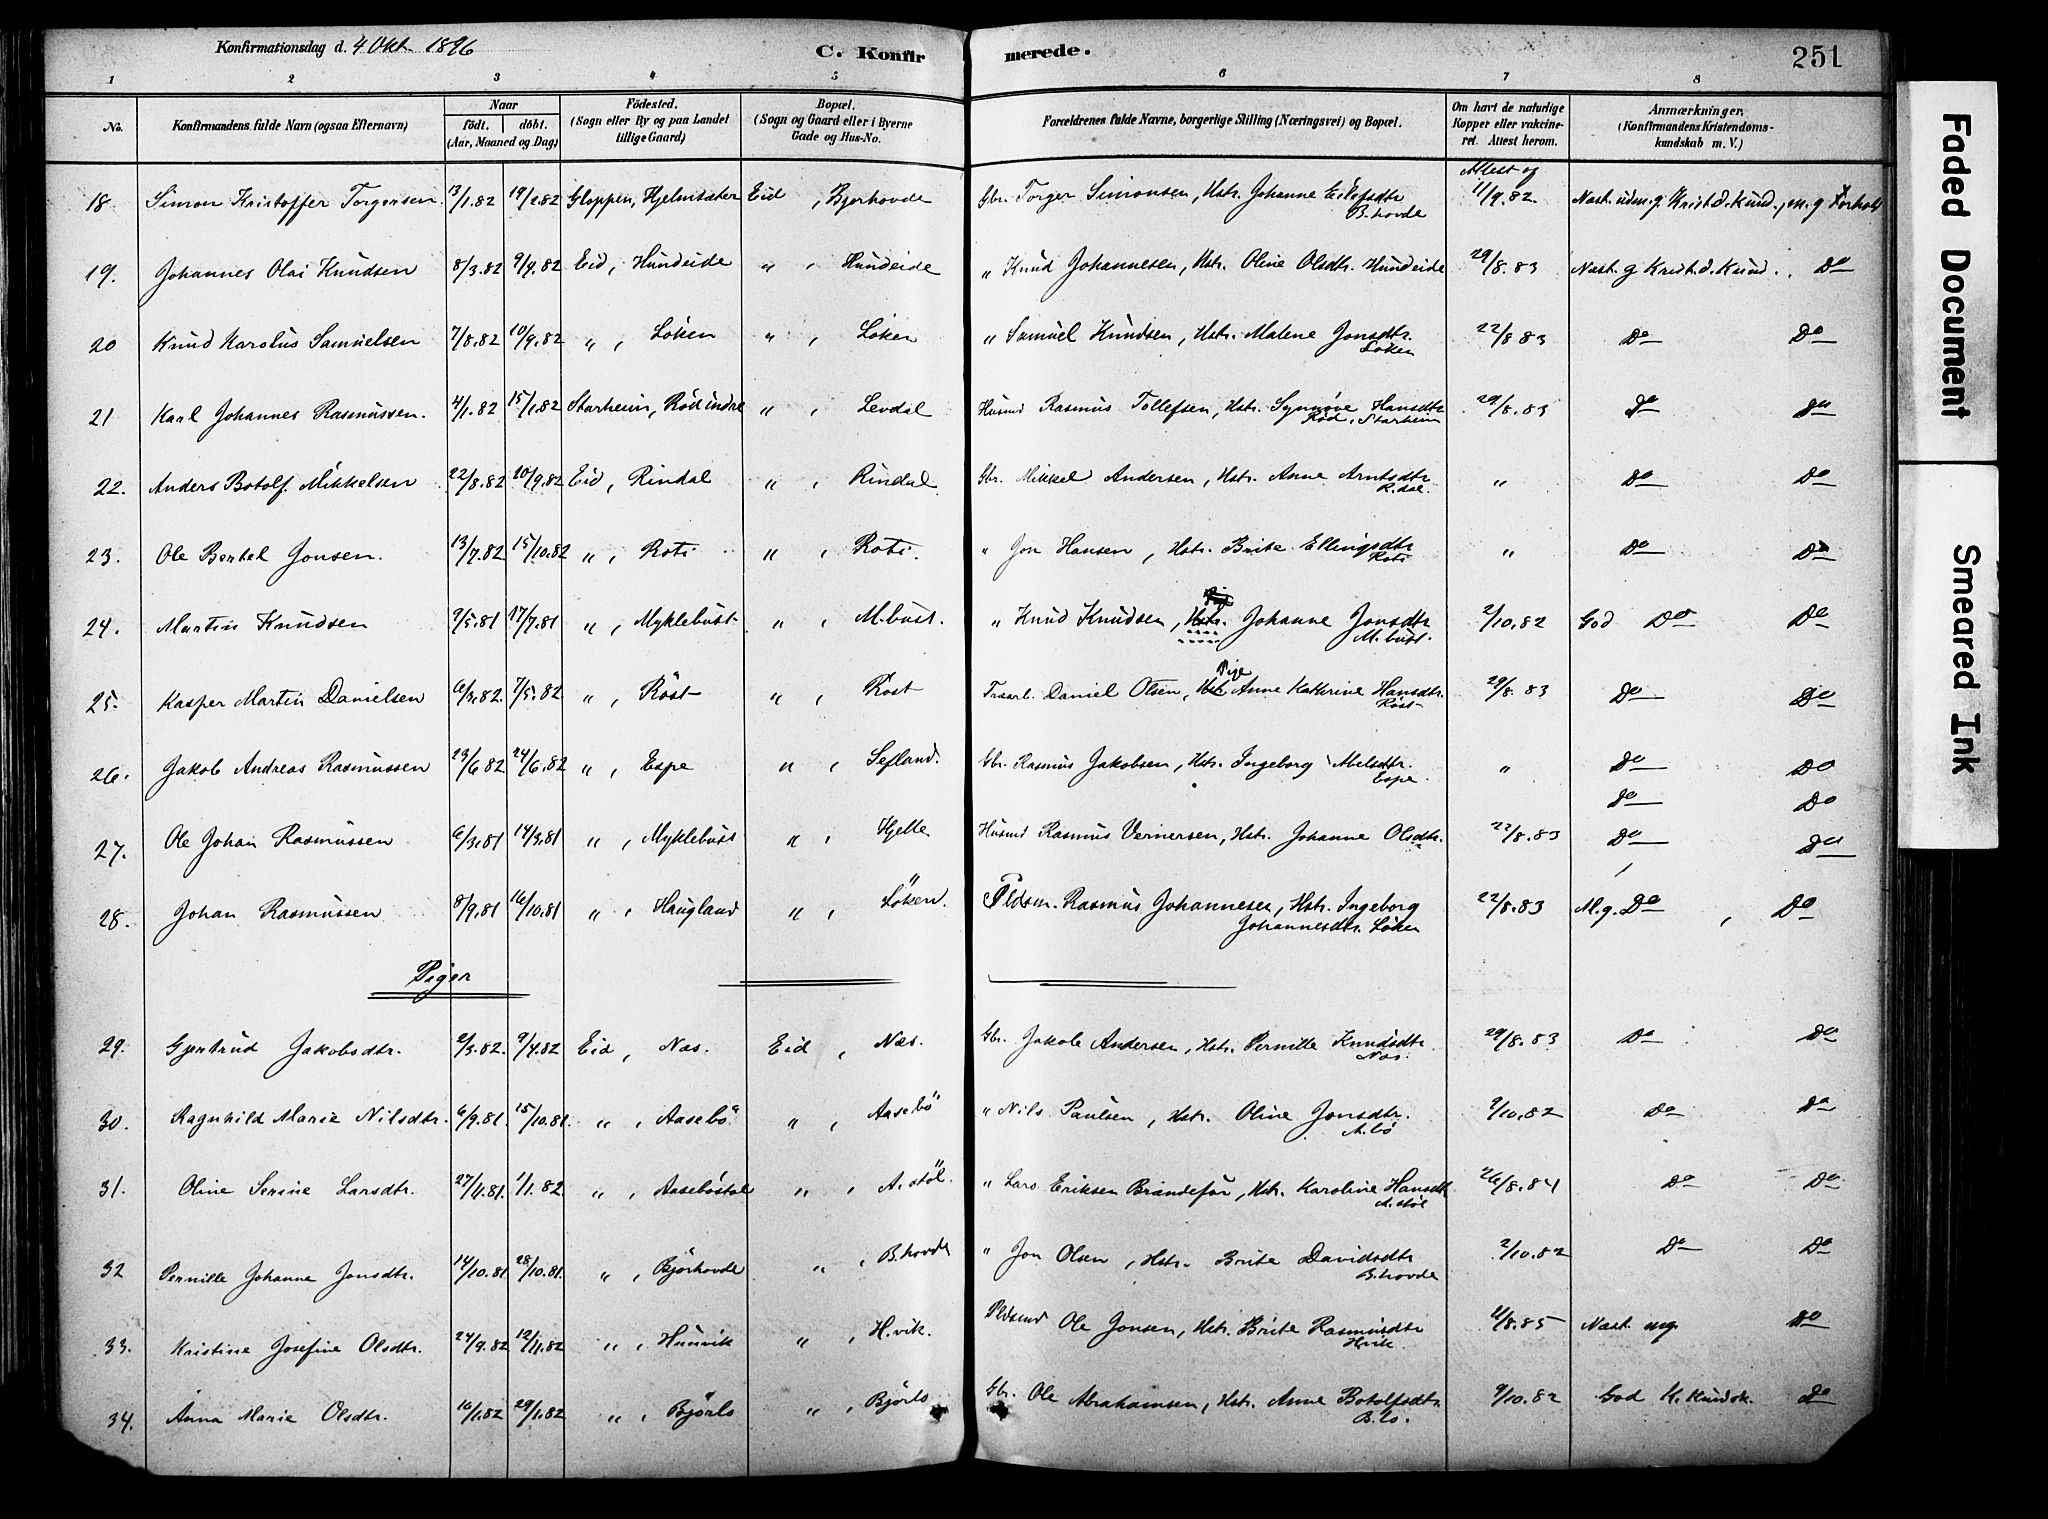 Konfirmationsdag d. 4 Okt. 1896
C. Konfirmerede.
251
1 2 3 4 5 6 7 8
No.
Konfirmandens fulde Navn (ogsaa Efternavn)
Naar
födt. döbt.
(Aar, Maaned og Dag)
Födested.
(Sogn eller By og paa Landet
tillige Gaard)
Bopæl.
(Sogn og Gaard eller i Byerne
Gade og Hus-No.
Forældrenes fulde Navne, borgerlige Stilling (Næringsvei) og Bopæl.
Om havt de naturlige
Kopper eller vakcine-
ret. Attest herom.
Anmærkninger,
(Konfirmandens Kristendoms-
kundskab m. V.)
Attest og
18 Simon Kristoffer Torgersen 13/1.82 19/2.82 Gloppen, Hjelmsæter Eid, Bjorhovde Gbr. Torger Simonsen, Hstr. Johanne 11/9.82. Nast. udm. g. Krist.d. Kund., m. g Forhold
B.hovde
19. Johannes Olai Knudsen 8/3.82 9/9.82 Eid, Hundeide " , Hundeide " Knud Johannesen, Hstr. Oline Olsdtr. Hundeide 29/8.83 Nast. g Krist.d. Kund. Do
20 Knud Karolus Samuelsen 7/8.82 10/9.82 " , Löken " , Löken " Samuel Knudsen, Hstr. Malene Jonsdtr. 22/8 83 Do Do
Löken
21 Karl Johannes Rasmussen. 4/1.82 15/1.82 Starheim, Röd indre " , Levdal Husmd Rasmus Tollefsen, Hstr. Synnöve Hansdtr 29/8.83 Do Do
Röd, Starheim
22. Anders Botolf Mikkelsen 22/8.82 10/9.82 Eid, Rindal " , Rindal. Gbr. Mikkel Andersen, Hstr. Anne Arntsdtr " Do Do
R.dal.
23. Ole Bertel Jonsen. 13/7.82 15/10.82 " , Roti " , Roti. " Jon Hansen, Hstr. Brite Ellingsdtr " Do Do
Roti
24. Martin Knudsen 9/5.81 17/7.81 " , Myklebust " , M.bust. " Knud Knudsen, Hstr. Johanne Jonsdtr 2/10.82 God Do Do
M.bust.
Pige
25. Kasper Martin Danielsen 6/3.82. 7/5.82 " , Röst " , Röst Traarl. Daniel Olsen, Hst Anne Kathrine Hansdtr. 29/8.83 Do Do
Röst
26. Jakob Andreas Rasmussen 23/6 82 24/6.82 " , Espe " , Sefland. Gbr. Rasmus Jakobsen, Hstr. Ingeborg Abelsdtr. " Do Do
Espe.
Do Do
27. Ole Johan Rasmussen 6/3.81 14/3.81 " , Myklebust " , Hjelle Husmd Rasmus Vernersen, Hstr. Johanne Olsdtr. 22/8.83 Do Do
28. Johan Rasmussen 8/9.81 16/10.81 " , Haugland " , Löken. Pldsm. Rasmus Johannesen, Hstr. Ingeborg 22/8.83 M.g. Do , Do
Johannesdtr. Löken
Piger
29. Gjertrud Jakobsdtr. 2/3.82. 9/4.82 Eid, Næs. Eid, Næs. Gbr. Jakob Andersen, Hstr. Pernille Knudsdtr 29/8.83 Do Do
Næs.
30. Ragnhild Marie Nilsdtr. 6/9.81 15/10.81. " , Aasebö " , Aasebö " Nils Paulsen, Hstr. Oline Jonsdtr. 9/10.82 Do Do
A.bö
31. Oline Serine Larsdtr. 27/11.81 1/1.82 " , Aaseböstöl " , A.stöl. " Lars Eriksen Brandefor, Hstr. Karoline Hansdtr 26/8.84 Do Do
A.stöl
32 Pernille Johanne Jonsdtr. 14/10.81 28/10.81. " , Björhovde " , B.hovde " Jon Olsen, Hstr. Brite Davidsdtr 2/10.82 Do Do
B.hovde
33. Kristine Josefine Olsdtr. 24/9.82 12/11.82 " , Hunvik " , H.vik. Pldsmd Ole Jonsen, Hstr. Brite Rasmusdtr 4/8.85 Næst. mg. Do
H.vik
34. Anna Marie Olsdtr. 10/1.82 29/1.82 " , Björlo " , Björlo Gbr. Ole Abrahamsen, Hstr. Anne Botolfsdtr 9/10.82 God K. Kundsk. Do
B.lo.
Faded Document
Smeared Ink